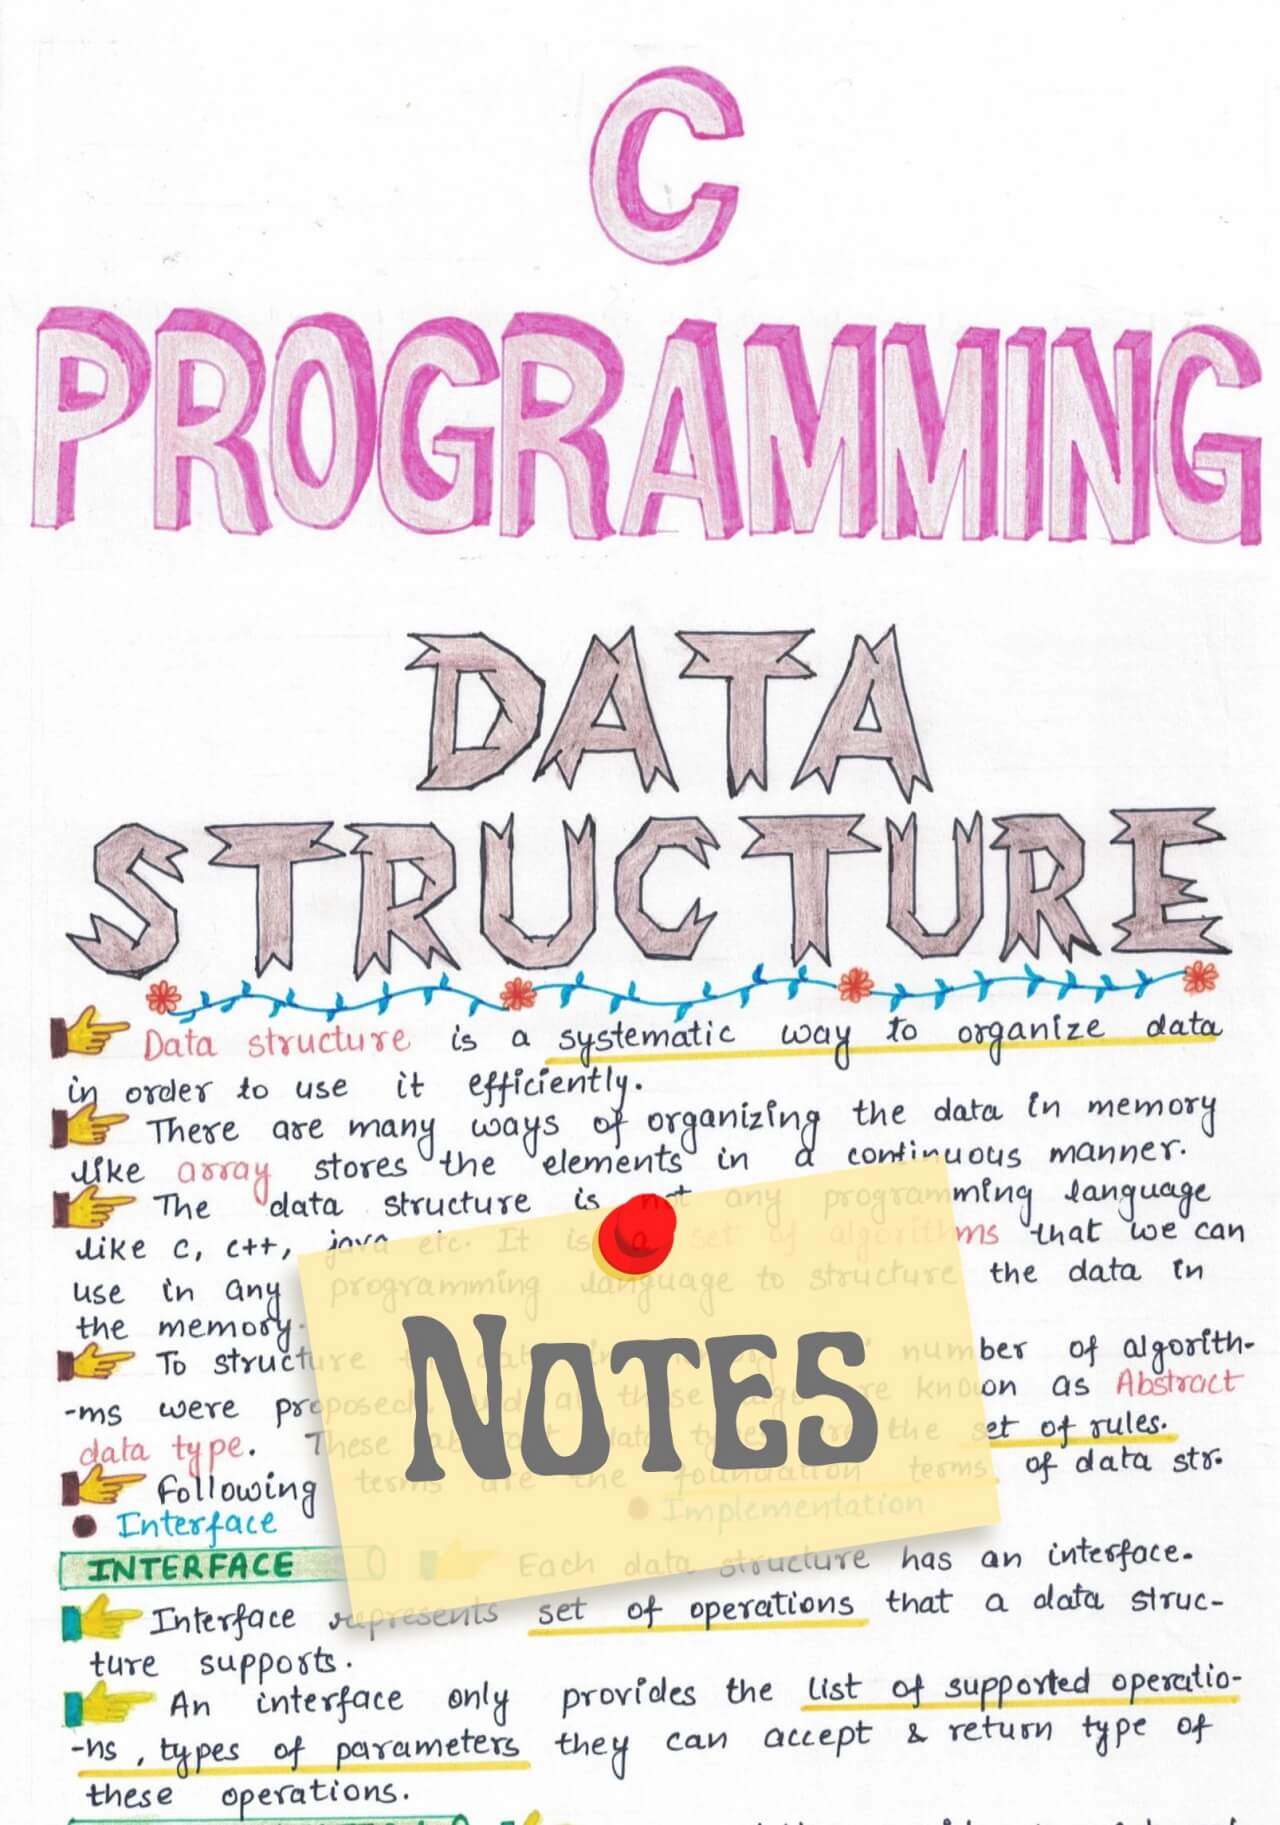 C
PROGRAMMING
DATA
STRUCTURE
Data structure is a systematic way to organize data
in order to use it efficiently.
There are many ways of organizing the data in memory
like array stores the elements in a continuous manner.
The data structure is not any programming language
like C, C++, java etc. It is a set of algorithms that we can
use in any programming language to structure the data in
the memory.
To structure the data in number of algorith-
-ms were proposed, and all these are known as Abstract
data type. These abstract data types are the set of rules.
Following terms are the foundation terms of data str.
• Interface • Implementation
NOTES
INTERFACE Each data structure has an interface.
Interface represents set of operations that a data struc-
ture supports.
An interface only provides the list of supported operatio-
-ns, types of parameters they can accept & return type of
these operations.